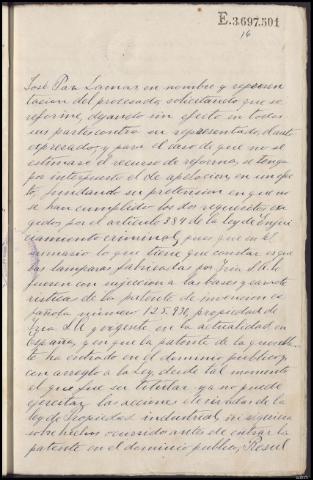 E.3.697.501
16
José Pan Lamar en nombre y represen
tacion del procesado, solicitando que se
reforme, dejando sin efecto en todas
sus partes contra su representado, el auto
expresado, y para el caso de que no se
estimase el recurso de reforma, se tenga
por interpuesto el de apelacion en un efec
to, fundando su pretencion en que no
se han cumplido los dos requisitos exi
gidos por el articulo 384 de la ley de Enjui
ciamiento criminal, pues que en el
sumario lo que tiene que constar es que
las lamparas fabricadas por lo
fueron con sujeccion a las bases y caracte
risticas de la patente de invencion es
pañola número 125.931, propiedad de
y vigente en la actualidad en
España, y en que la patente de la querellan
te ha entrado en el dominio publico, y
con arreglo a la Ley, desde tal momento
el que fue su titular ya no puede
ejercitar las acciones derivadas de la
ley de Propiedad industrial, ni siquiera
sobre hechos ocurridos antes de entrar la
patente en el dominio publico; Resul